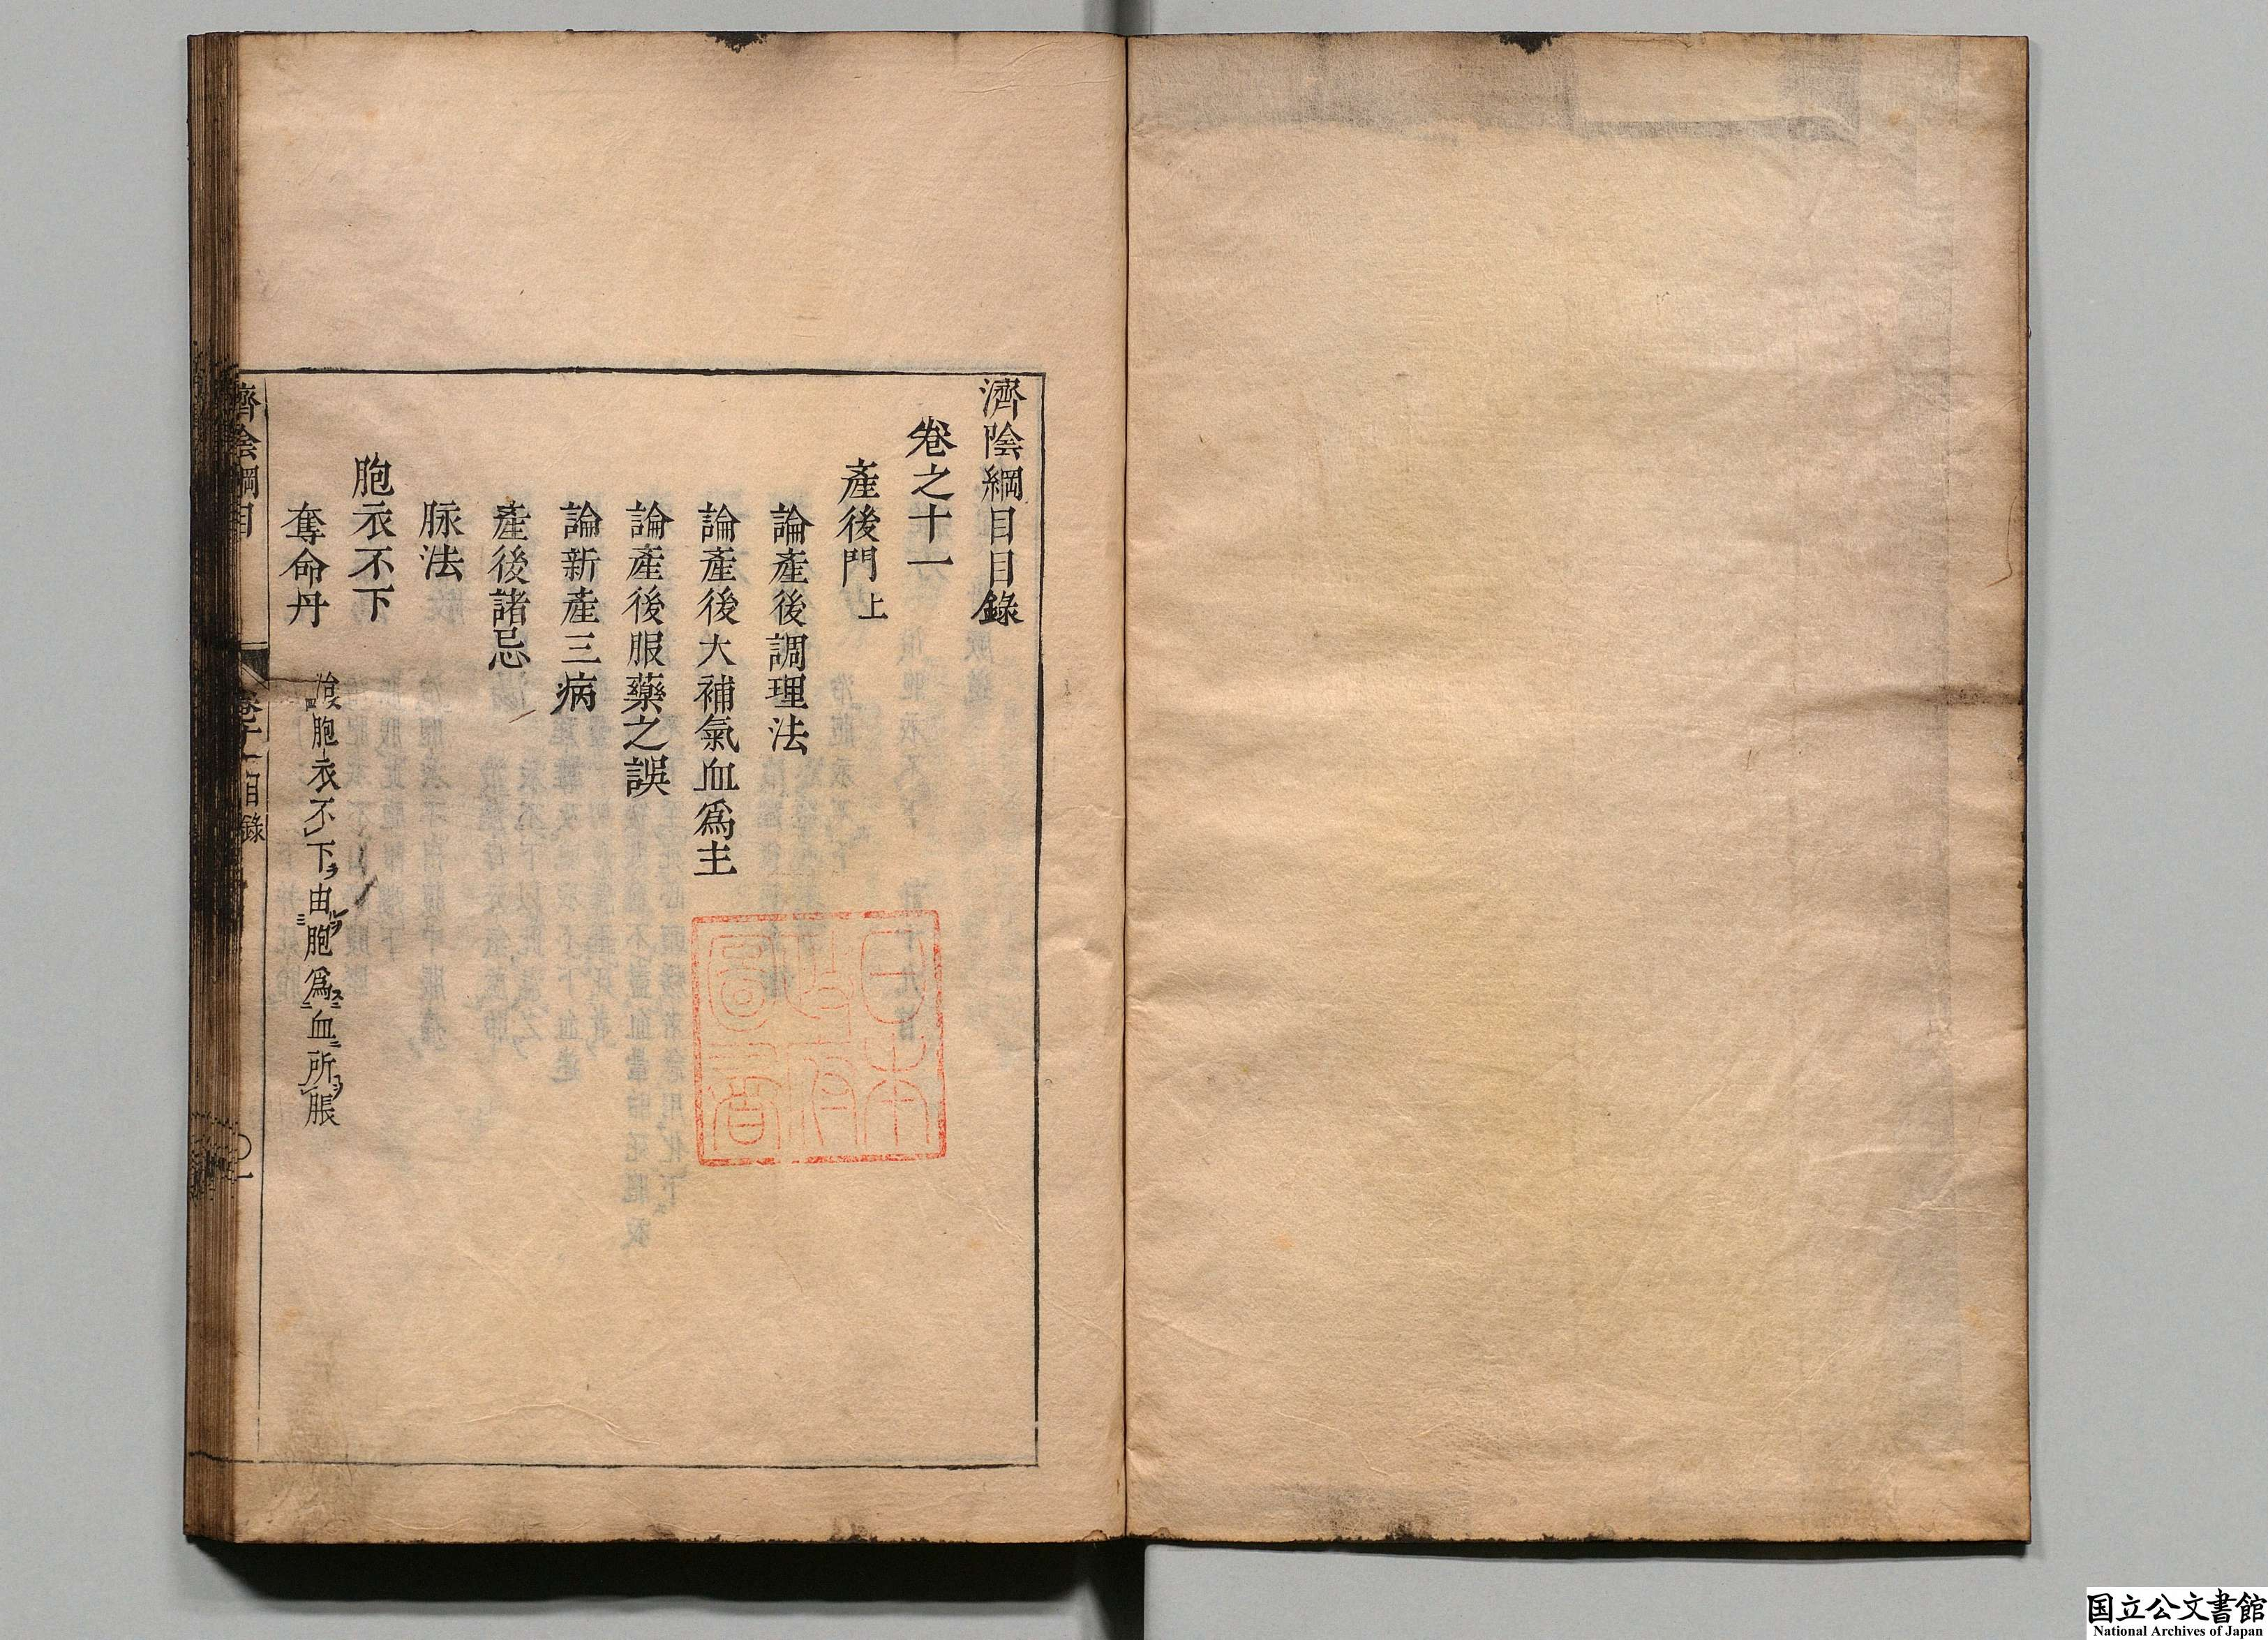 濟陰綱目目錄
卷之十一
產後門上
論產後調理法
論產後大補氣血爲主
論產後服藥之誤
論新產三病
產後諸忌
脈法
胞衣不下
奪命丹 治胞衣不下由胞爲血所脹
濟陰綱目 卷十一目錄 〇一
日本政府圖書
国立公文書館
National Archives of Japan